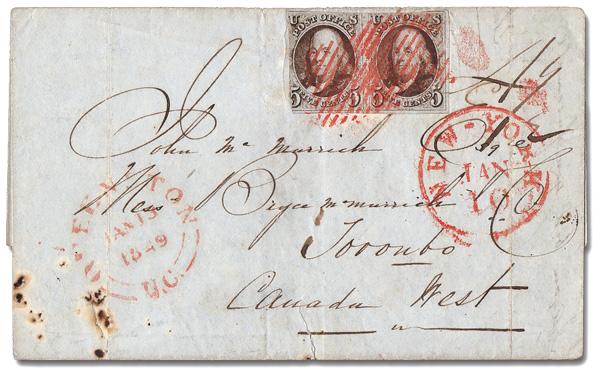 U S U S
POST OFFICE POST OFFICE
5 FIVE CENTS 5 5 FIVE CENTS 5
John Mc Murrich Esqre
Messrs Bryce McMurrich & Co
Toronto
Canada West
NEW-YORK
JAN
10
JAN 13
1849
U.C.